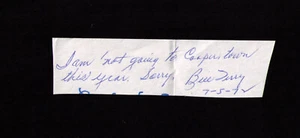 I am not going to Cooperstown
this year. Sorry. Bill Terry
7-5-72